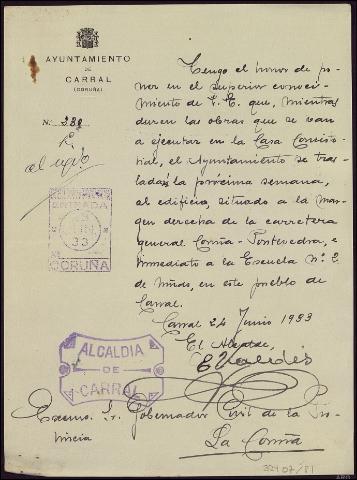 AYUNTAMIENTO
DE
CARRAL
(CORUÑA)
N.
Tengo el honor de po-
ner en el superior conoci-
miento de V. E. que, mientras
duren las obras que se van
a ejecutar en la Casa Consisto-
rial, el Ayuntamiento se tras-
ladará la próxima semana,
al edificio situado a la mar-
gen derecha de la carretera
general Coruña-Pontevedra, e
inmediato a la Escuela nº 2
de niñas, en este pueblo de
Carral.
Carral 24 Junio 1933
El Alcalde,
ENTRADA
JUN
33
CORUÑA
ALCALDIA
DE
CARRAL
Excmo. Sr. Gobernador Civil de la Pro-
vincia
La Coruña